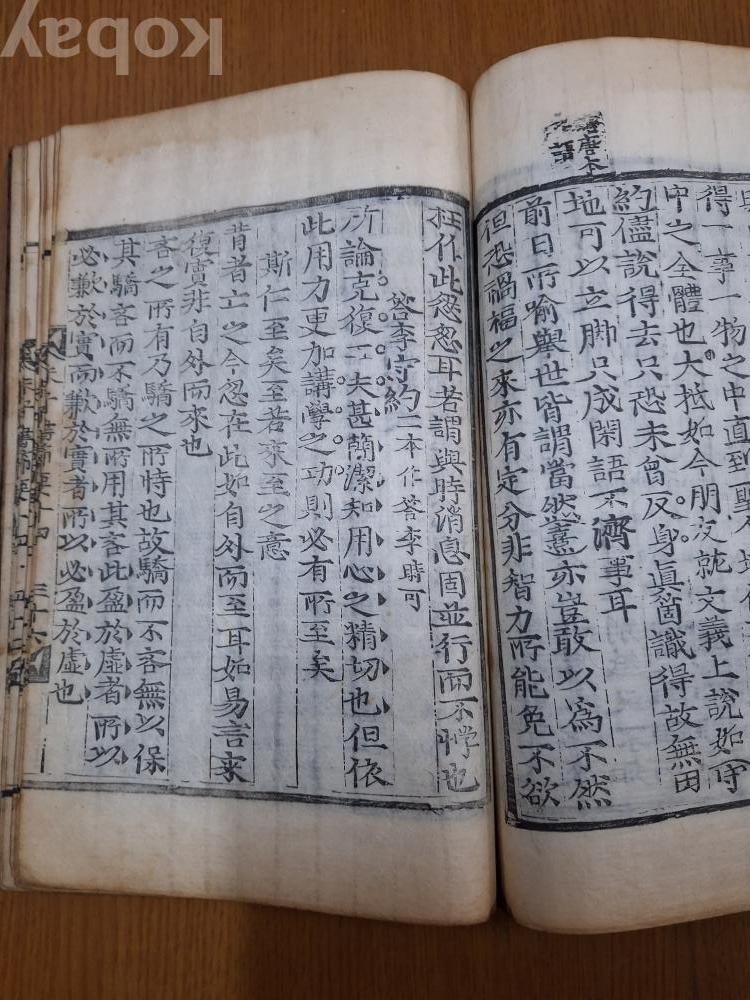 得一事一物之中直到
中之全體也大抵如今朋友就文義上說如守
約儘說得去只恐未曾反身眞箇識得故無田
地可以立脚只成閑語不濟事耳
前日所喻與世皆謂當然蓋亦豈敢以爲不然
但恐禍福之來亦有定分非智力所能免不欲
枉作此忽忽耳若謂與時消息固並行而不悖也
答李守約一本作答李時可
所論克復工夫甚簡潔知用心之精切也但依
此用力更加講學之功則必有所至矣
斯仁至矣至若來至之意
昔者亡之今忽在此如自外而至耳如易言來
復實非自外而來也
吝之所有乃驕之所恃也故驕而不吝無以保
其驕吝而不驕無所用其吝此盈於虛者所以
必歉於實而歉於實者所以必盈於虛也
唐本
語
kobay